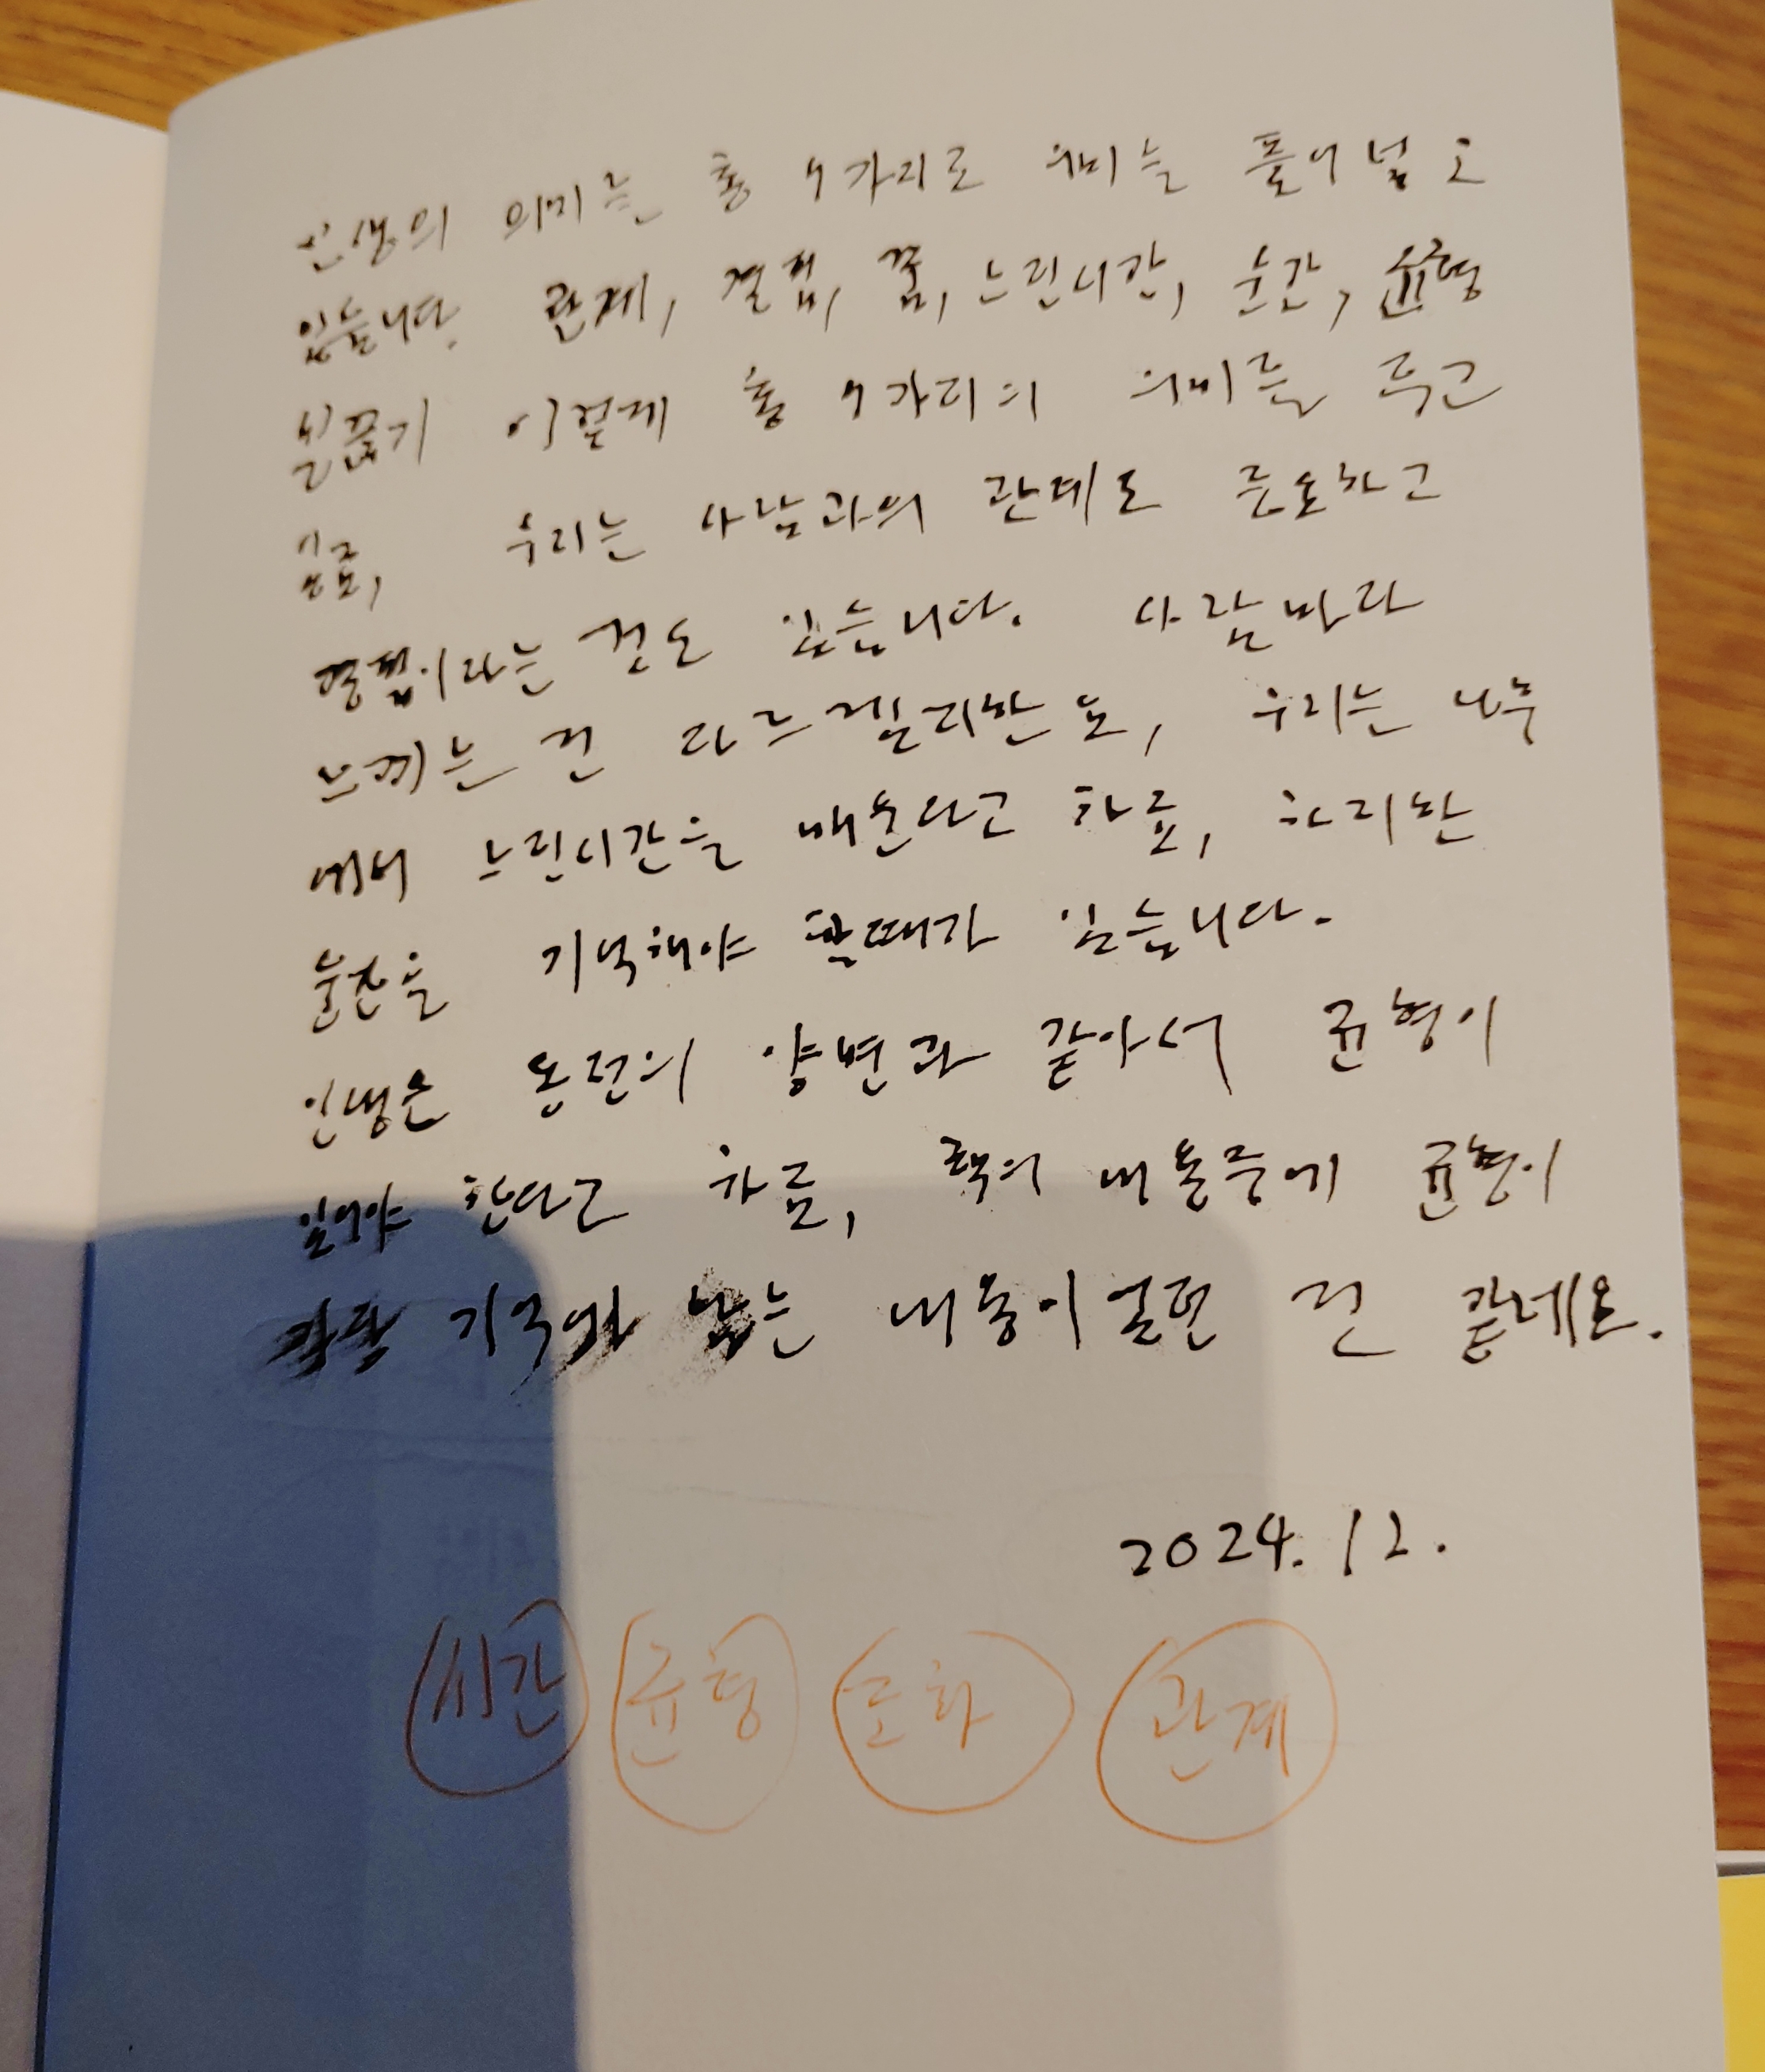 인생의 의미는 총 7가지로 의미를 풀어넣고
있습니다. 관계, 결핍, 꿈, 느린시간, 순간, 균형
이렇게 총 7가지의 의미를 두고
우리는 사람과의 관계도 중요하고
결핍이라는 것도 있습니다. 사람마다
느끼는 건 다르겠지만요, 우리는 나무
에서 느린시간을 배운다고 하죠, 하나의
순간을 기억해야 할때가 있습니다.
인생은 동전의 양면과 같아서 균형이
있어야 한다고 하죠, 책의 내용중에 균형이
가장 기억에 남는 내용이었던 건 같네요.
2024. 12.
시간 균형 조화 관계